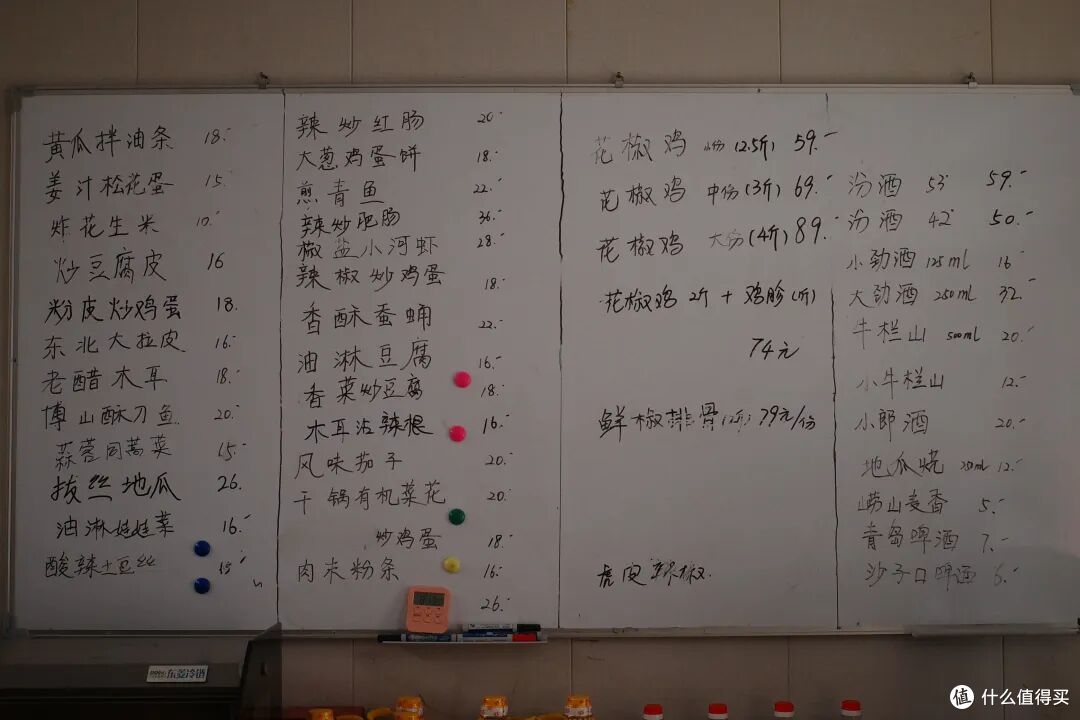 黄瓜拌油条 18.-
姜汁松花蛋 15.-
炸花生米 10.-
炒豆腐皮 16
粉皮炒鸡蛋 18.
东北大拉皮 16.-
老醋木耳 18.-
博山酥刀鱼 20.-
蒜蓉同蒿菜 15.-
拔丝地瓜 26.
油淋娃娃菜 16.-
酸辣土豆丝 15.-
辣炒红肠 20.-
大葱鸡蛋饼 18.-
煎青鱼 22.-
辣炒肥肠 36.-
椒盐小河虾 28.-
辣椒炒鸡蛋 18.-
香酥蚕蛹 22.-
油淋豆腐 16.-
香菜炒豆腐 18.-
木耳沾辣根 16.-
风味茄子 20.-
干锅有机菜花 20.-
炒鸡蛋 18.-
肉末粉条 16.-
26.-
花椒鸡 小份 (2.5斤) 59.-
花椒鸡 中份 (3斤) 69.-
花椒鸡 大份 (4斤) 89.-
花椒鸡 2斤 + 鸡胗 (1斤)
74元
鲜椒排骨 (2斤) 79元/份
虎皮辣椒.
汾酒 53° 59.-
汾酒 42° 50.-
小劲酒 125ml 16
大劲酒 250ml 32.-
牛栏山 500ml 20.-
小牛栏山 12.-
小郎酒 20.-
地瓜烧 12.-
崂山麦香 5.-
青岛啤酒 7.-
沙子口啤酒 6.-
东菱冷链
值 什么值得买